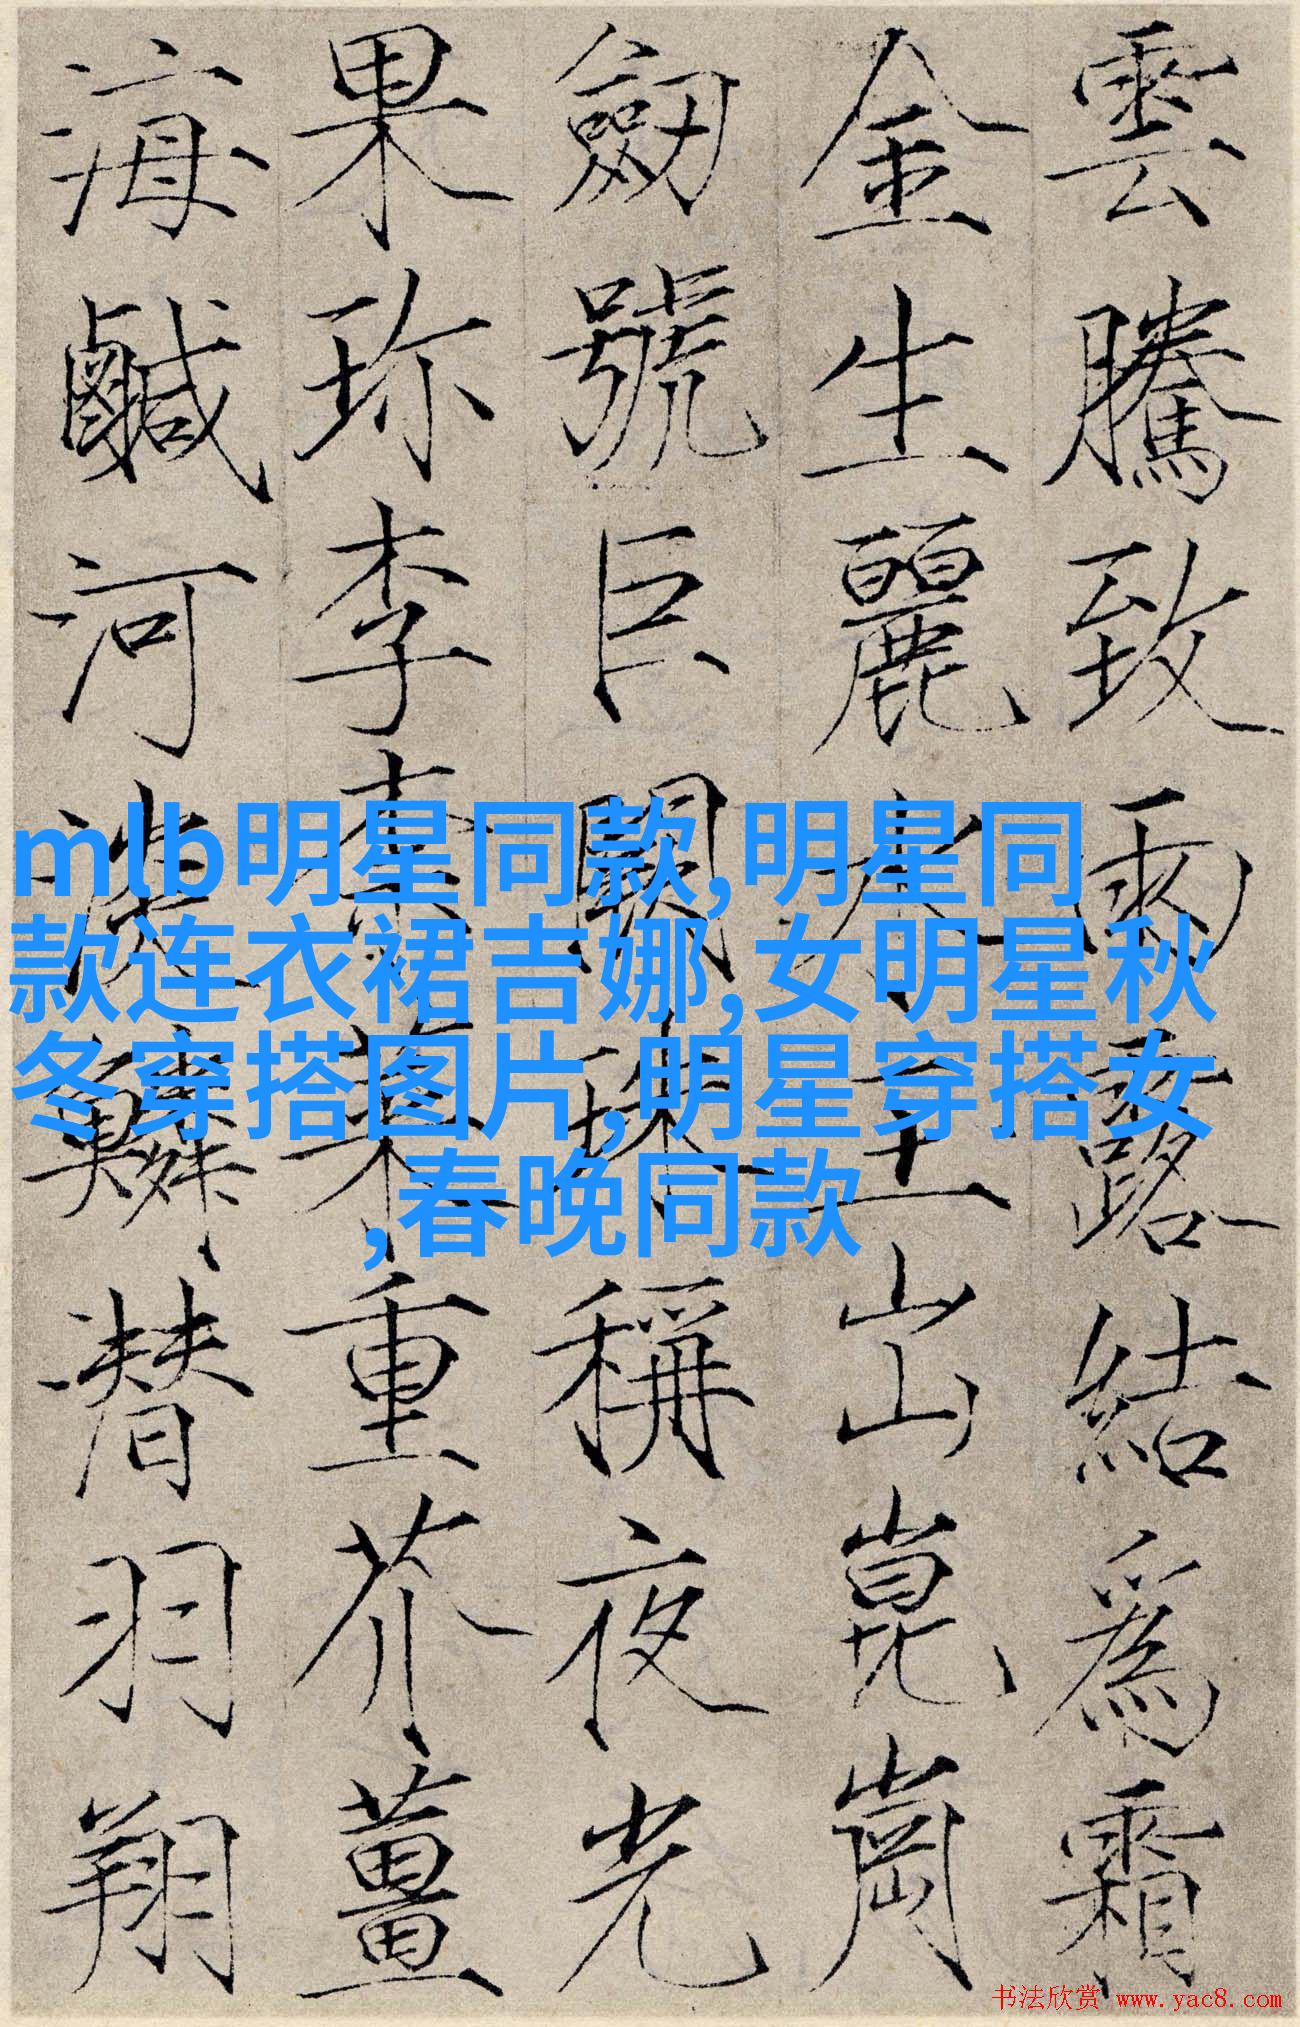 雲騰致雨露結爲霜
金生麗水玉出崑崗
劒號巨闕珠稱夜光
果珎李柰菜重芥薑
海鹹河淡鱗潜羽翔
mlb明星同款,明星同
款连衣裙吉娜,女明星秋
冬穿搭图片,明星穿搭女
,春晚同款
书法欣赏 www.yac8.com